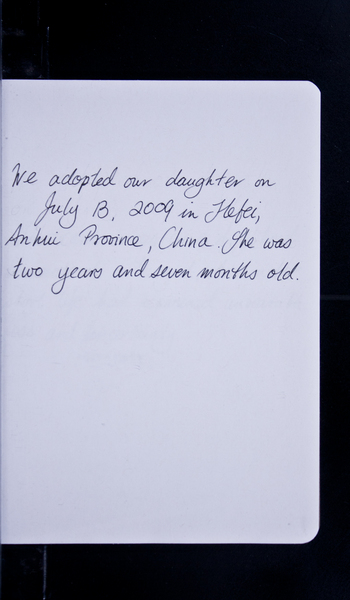 We adopted our daughter on
July 13, 2009 in Hefei,
Anhui Province, China. She was
two years and seven months old.